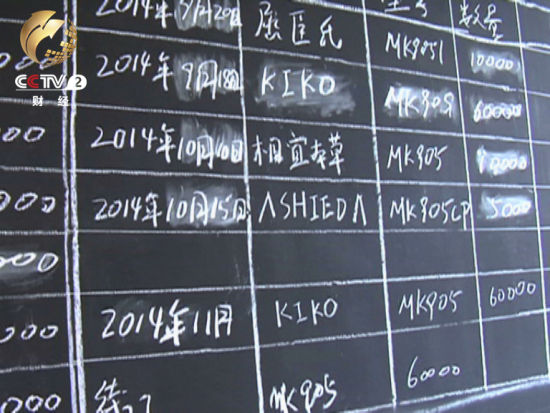 CCTV 2
财经
2014年9月20日 屈臣氏 MK905l 10000
2014年9月18日 KIKO MK909 60000
000 2014年10月10日 相宜本草 MK905 10000
000 2014年10月15日 ASHIEDA MK905CP 5000
000
000 2014年11月 KIKO MK905 60000
000 MK905 60000